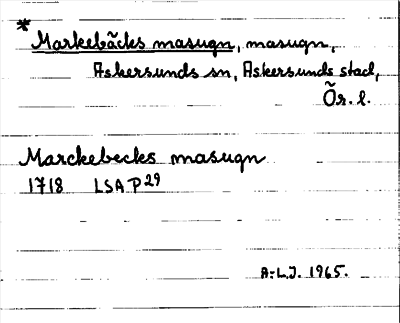 * Markebäcks masugn, masugn,
Askersunds sn, Askersunds stad,
Ör. l.
Marckebecks masugn
1718 LSA P29
A-L.J. 1965.